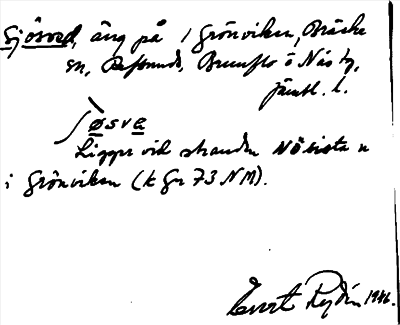 Sjösved, äng på 1 Grönviken, Bräcke
sn, Refsunds, Brunflo o Näs tg,
Jämtl. l.
ʃøsve
Ligger vid stranden NÖ sista n
i Grönviken (k gn 73 NM).
Evert Rydin 1946.